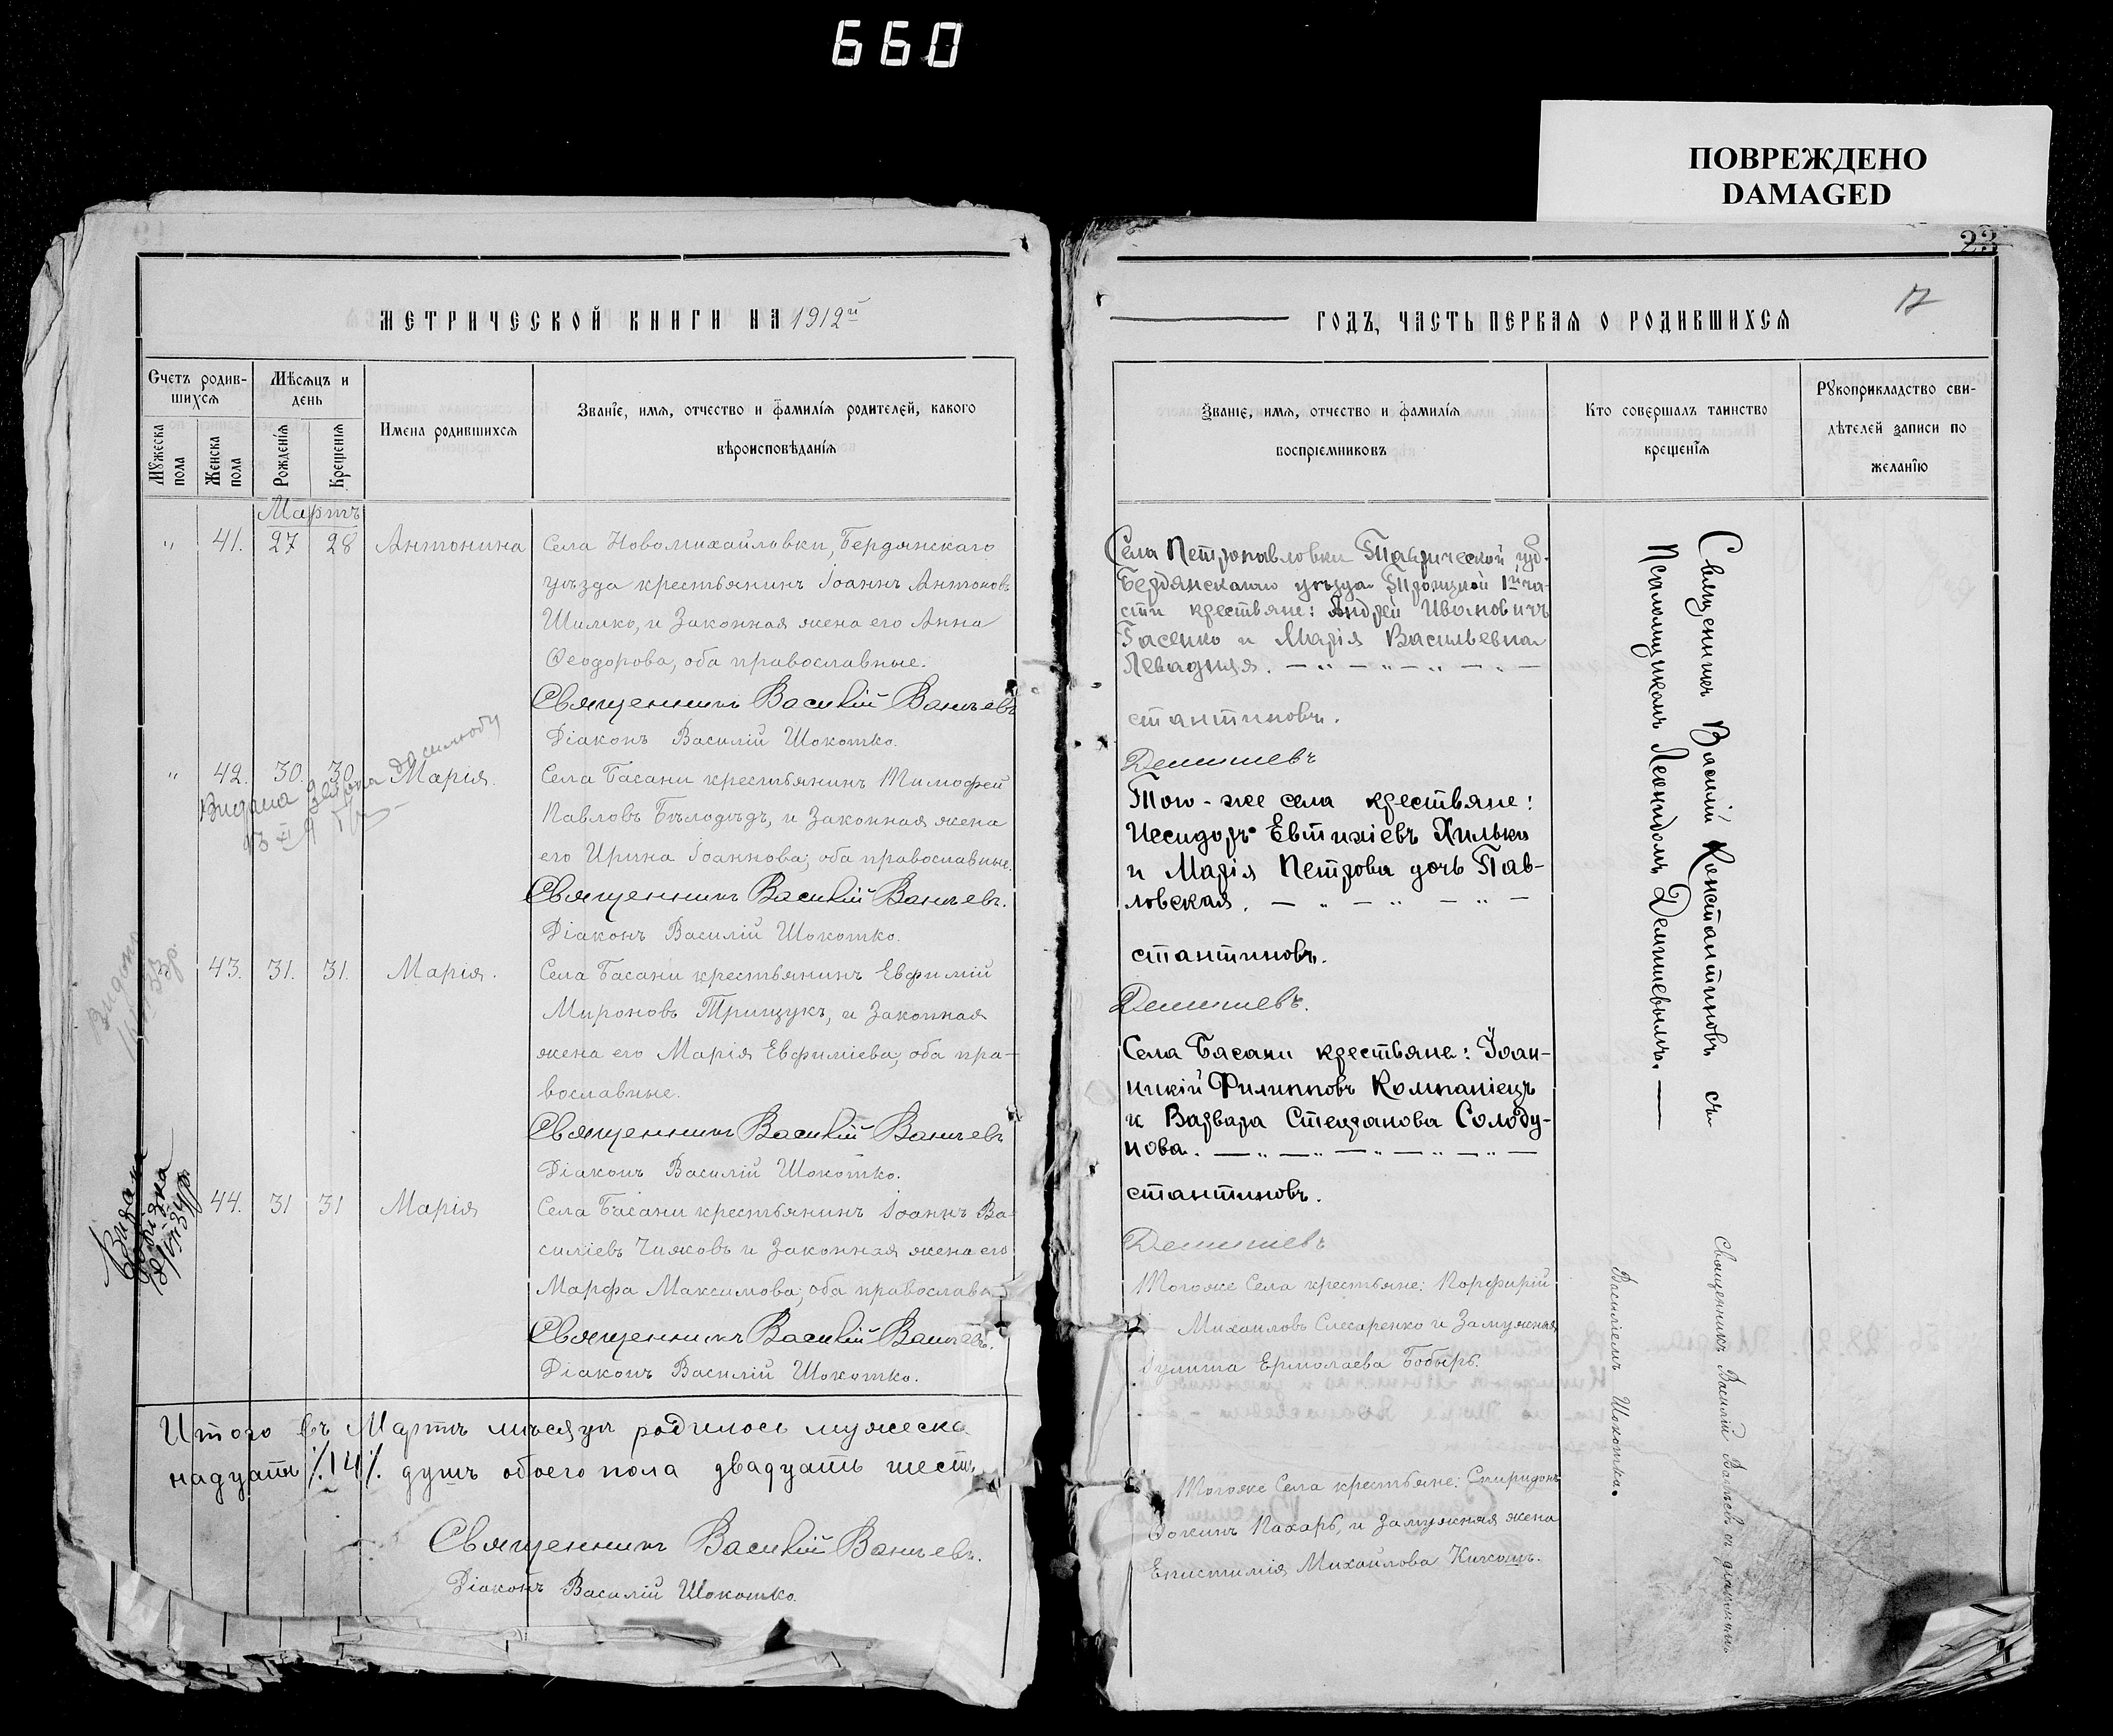 660
ПОВРЕЖДЕНО
DAMAGED
МЕТРИЧЕСКОЙ КНИГИ НА 1912й
Счетъ родив-
шихся
Мѣсяцъ и
день
Мужеска
пола
Женска
пола
Рожденія
Крещенія
Имена родившихся
Званіе, имя, отчество и фамилія родителей, какого
вѣроисповѣданія
Мартъ
" 41. 27 28 Антонина Села Новомихайловки, Бердянскаго
уѣзда крестьянинъ Іоаннъ Антоновъ
Шимко, и Законная жена его Анна
Ѳеодорова, оба православные.
Священникъ Василій Ванчевъ
Діаконъ Василій Шокотко.
" 42. 30. 30. Марія. Села Басани крестьянинъ Тимофей
Павловъ Бѣлодѣдъ, и Законная жена
его Ирина Іоаннова; оба православные.
Видана
Священникъ Василій Ванчевъ.
Діаконъ Василій Шокотко.
43. 31. 31. Марія. Села Басани крестьянинъ Евфимій
Мироновъ Трищукъ, и Законная
жена его Марія Евфиміева, оба пра-
вославные.
Священникъ Василій Ванчевъ
Діаконъ Василій Шокотко.
44. 31 31 Марія Села Басани крестьянинъ Іоаннъ Ва-
силіевъ Чижовъ и Законная жена его
Марфа Максимова; оба православн
Священникъ Василій Ванчевъ.
Діаконъ Василій Шокотко.
Видана
Итого въ Мартѣ мѣсяцѣ родилось мужеска
надцать /.14/. душъ обоего пола двадцать шесть
Священникъ Василій Ванчевъ.
Діаконъ Василій Шокотко.
23
17
ГОДЪ, ЧАСТЬ ПЕРВАЯ О РОДИВШИХСЯ
Званіе, имя, отчество и фамилія
воспріемниковъ
Кто совершалъ таинство
крещенія
Рукоприкладство сви-
дѣтелей записи по
желанію
Села Петропавловки Таврической губ.
Бердянскаго уѣзда Троицкой 1й ча-
сти крестьяне: Андрей Ивановичъ
Гасенко и Марія Васильевна
Левадняя. — " — " — " — " —
стантиновъ.
Демишевъ
Того-же села крестьяне:
Исидоръ Евтихіевъ Хилько
и Марія Петрова дочь Пав-
ловская. — " — " — " —
стантиновъ.
Демишевъ.
Села Басани крестьяне: Іоан-
никій Филипповъ Компаніецъ
и Варвара Стефанова Солоду-
нова. — " — " — " — " — " —
стантиновъ.
Демишевъ
Тогоже Села крестьяне: Порфирій
Михаиловъ Слюсаренко и Замужняя
Іулита Ермолаева Бобырь.
Тогоже Села крестьяне: Спиридонъ
Ѳокинъ Пахарь, и замужняя жена
Епистимія Михайлова
Священникъ Василій Константиновъ съ
Псаломщикомъ Леонидомъ Демишевымъ. —
Священникъ Василій Ванчевъ съ діакономъ
Василіемъ Шокотка.